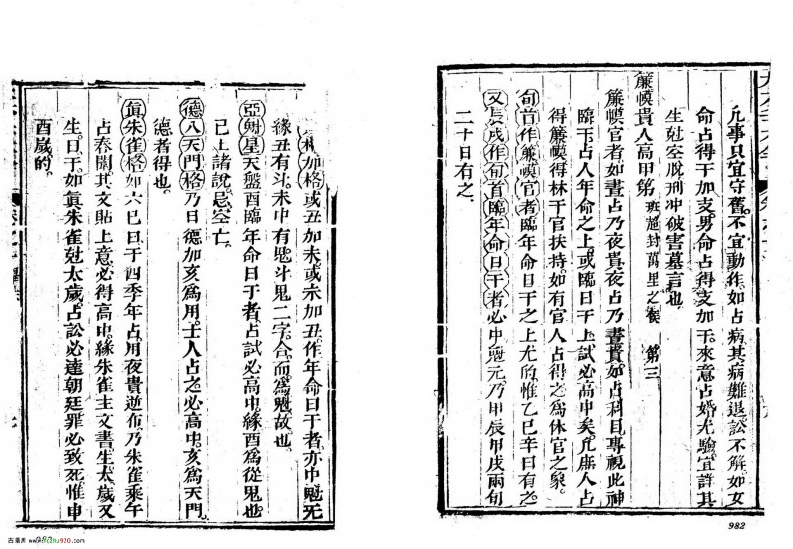 凡事只宜守舊。不宜動作。如占病。其病難退。訟不解。如女
命占得干加支。男命占得支加干。來意占婚尤驗。宜詳其
生尅空脫刑冲破害墓言也。
簾幙貴人高甲第 班超封萬里之侯 第三
簾幙官者。如晝占乃夜貴。夜占乃晝貴。如占科目。專視此神
臨于占人年命之上。或臨日干上。試必高中矣。凡庶人占
得簾幙。得林下官扶持。如有官人占得之。為休官之象。
旬首作簾幙官者。臨年命日干之上尤的。惟乙巳辛日有之
又辰戌作旬首臨年命日干者。必中魁元。乃甲辰甲戌兩旬
二十日有之。
加格或丑加未。或未加丑。作年命日干者。亦中魁元
緣丑有斗。未中有鬼。斗鬼二字。合而為魁故也。
亞魁星天盤酉臨年命日干者。占試必高中。緣酉為從魁也
已上諸說。忌空亡。
德入天門格乃日德加亥為用。士人占之必高中。亥為天門
德者得也。
真朱雀格如六巳日干四季年占。用夜貴逆布。乃朱雀乘午
占春闈。其文貼上意。必得高中。緣朱雀主文書。生太歲。又
生日干。如真朱雀尅太歲。占訟必達朝廷。罪必致死。惟申
酉歲的。
982
古籍库 www.guji920.com